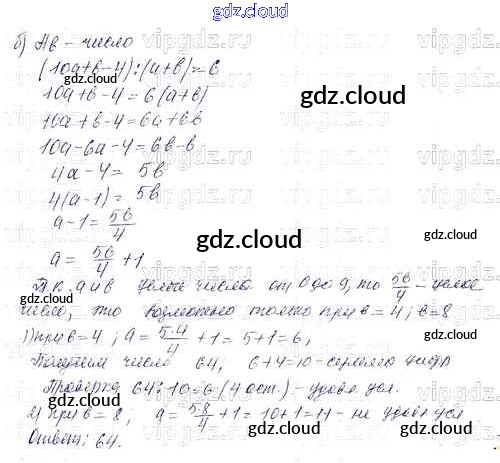 gdz.cloud
gdz.cloud
б) Ab – число
(10a+b-4):(a+b)=6
10a+b-4=6(a+b)
gdz.cloud
10a+b-4=6a+6b
10a-6a-4=6b-b
4a-4= 5b
4(a-1)= 5b
a-1= 5b/4
gdz.cloud
gdz.cloud
a= 5b/4 +1
Т.к. a и b целые числа от 0 до 9, то 5b/4 – целое
число, то возможно только при b=4; b=8
1) при b=4; a= 5·4/4 +1=5+1=6,
gdz.cloud
Получим число 64, 6+4=10 – сумма цифр
Проверка 64:10=6 (4 ост.) – удовл. усл.
2) при b=8; a= 5·8/4 +1=10+1=11 – не удовл усл
Ответ: 64.
gdz.cloud